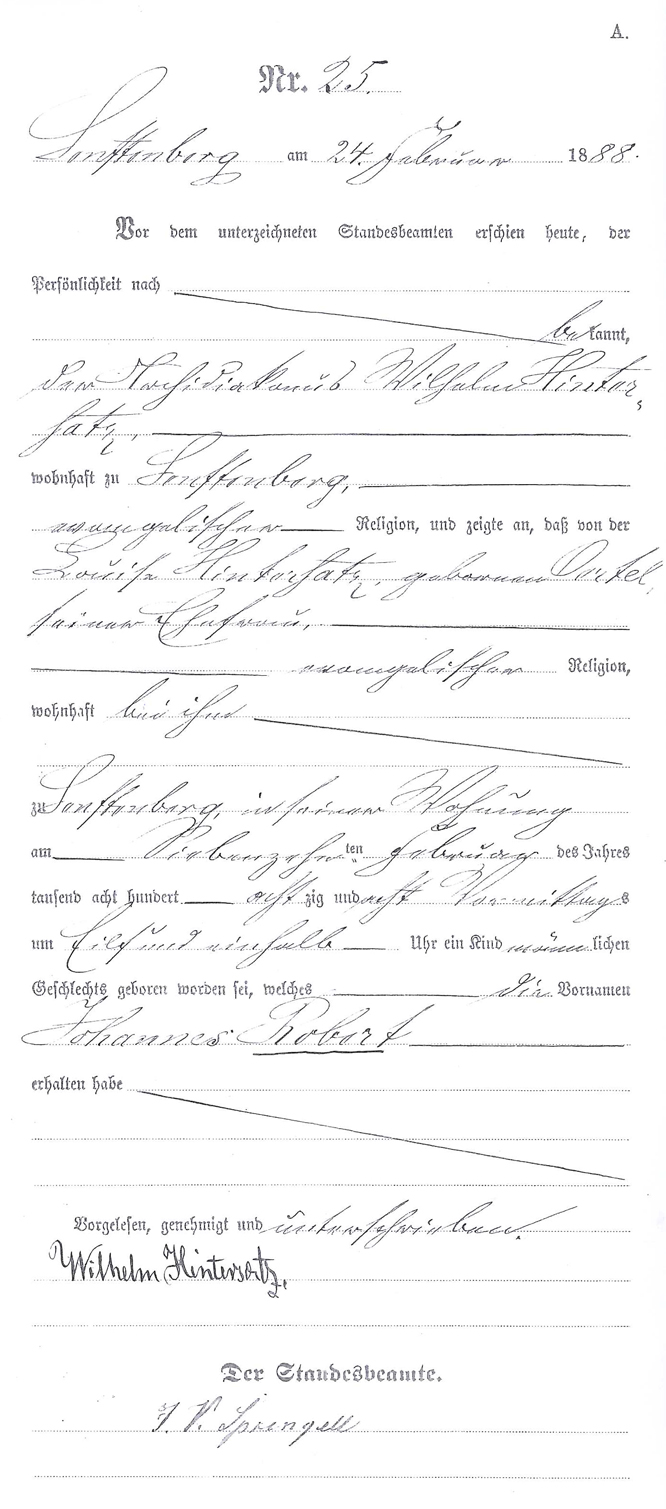 A.
Nr. 25.
Senftenberg am 24. Februar 1888.
Vor dem unterzeichneten Standesbeamten erschien heute, der
Persönlichkeit nach
bekannt,
der Archidiakonus Wilhelm Hinter-
satz,
wohnhaft zu Senftenberg,
evangelischer Religion, und zeigte an, daß von der
Louise Hintersatz, geborenen Oertel,
seiner Ehefrau,
evangelischer Religion,
wohnhaft bei ihm
zu Senftenberg, in seiner Wohnung
am Siebenzehnten Februar des Jahres
tausend acht hundert achtzig und acht Vormittags
um Eilf und einhalb Uhr ein Kind männlichen
Geschlechts geboren worden sei, welches die Vornamen
Johannes Robert
erhalten habe
Vorgelesen, genehmigt und unterschrieben.
Wilhelm Hintersatz.
Der Standesbeamte.
J. V. Sprengell